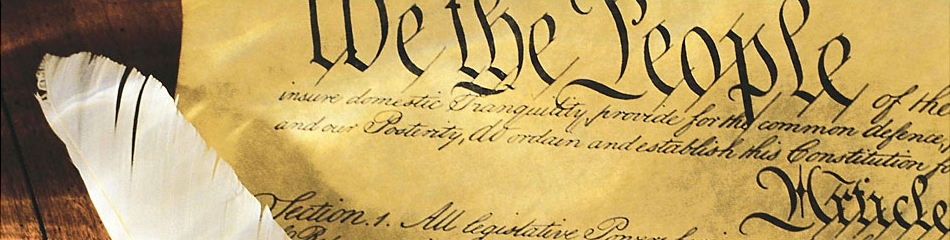 We the People of the
insure domestic Tranquility, provide for the common defence,
and our Posterity, do ordain and establish this Constitution fo
Article
Section. 1. All legislative Powers